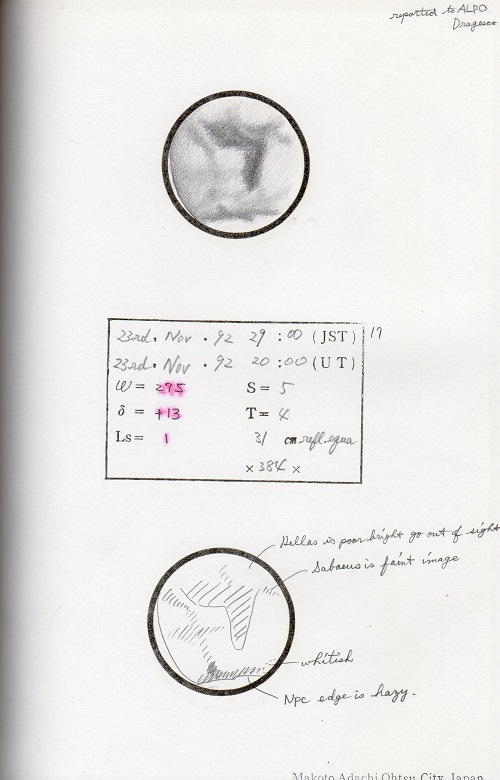 reported to ALPO
Dragesco
23rd. Nov . 92 29 : 00 (JST) 17
23rd. Nov . 92 20 : 00 (UT)
ω = 275 S = 5
δ = +13 T = 4
Ls = 1 31 cm refl. equa
× 384 ×
Hellas is poor bright go out of sight
Sabaeus is faint image
whitish
Npc edge is hazy.
Makoto Adachi Ohtsu City, Japan